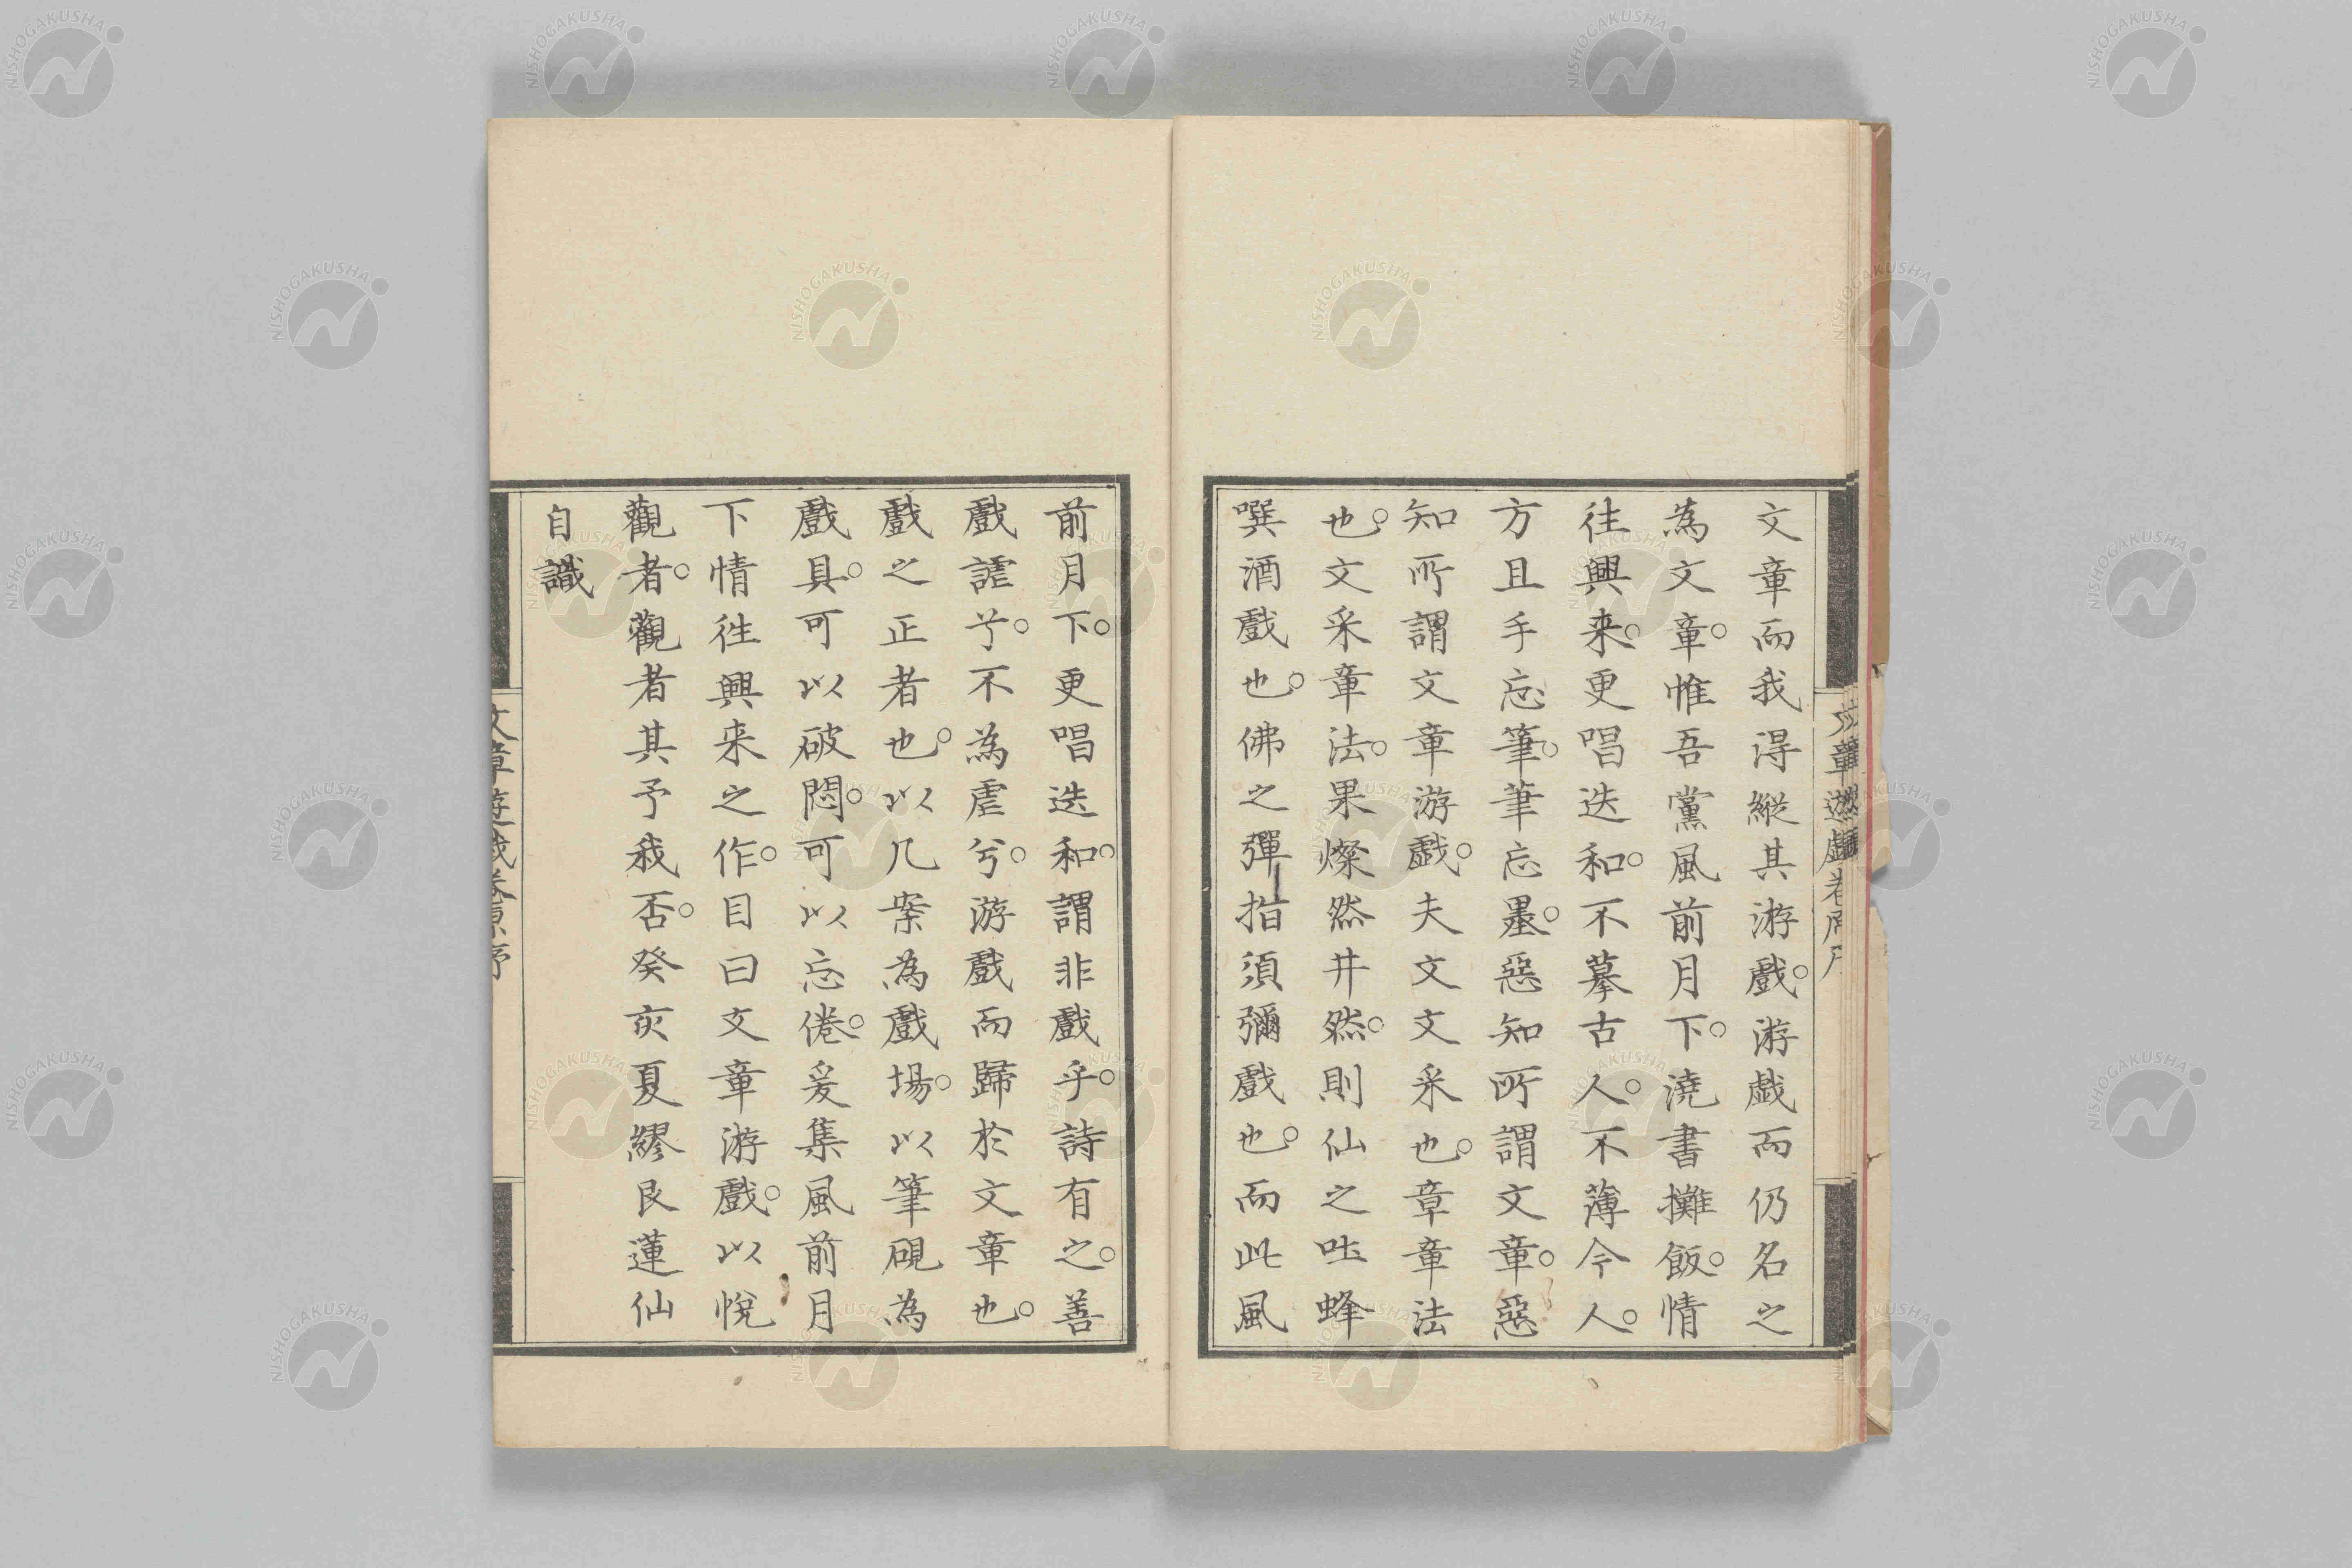 文章而我得縱其游戲。游戯而仍名之
為文章。惟吾黨風前月下。澆書攤飯。情
徃興来。更唱迭和。不摹古人。不薄今人。
方且手忘筆。筆忘墨。惡知所謂文章。惡
知所謂文章游戯。夫文文采也。章章法
也。文采章法。果燦然井然。則仙之吐蜂
噀酒戲也。佛之彈指須彌戲也。而此風
前月下。更唱迭和。謂非戲乎。詩有之。善
戲謔兮。不為虐兮。游戲而歸於文章也。
戲之正者也。以几案為戲場。以筆硯為
戲具。可以破悶。可以忘倦。爰集風前月
下情徃興来之作。目曰文章游戲。以悅
觀者。觀者其予我否。癸亥夏繆艮蓮仙
自識
NISHOGAKUSHA